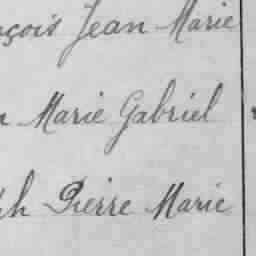 nçois Jean Marie
Marie Gabriel
ph Pierre Marie